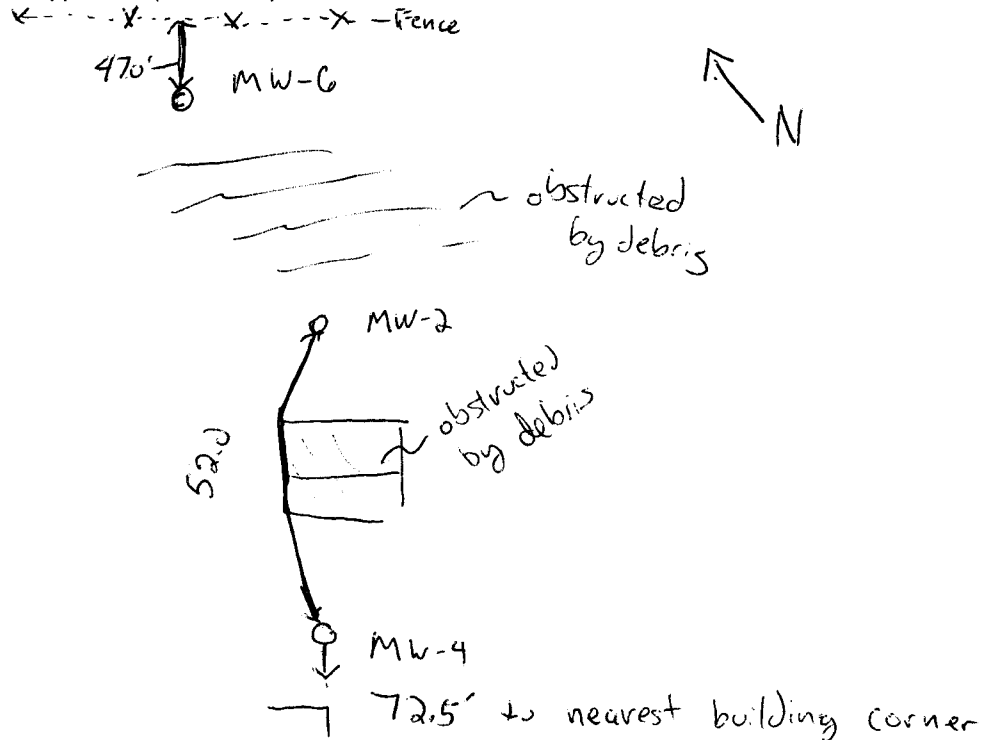 Fence
47.0'
MW-6
N
obstructed
by debris
MW-2
obstructed
by debris
52.0
MW-4
72.5' to nearest building corner